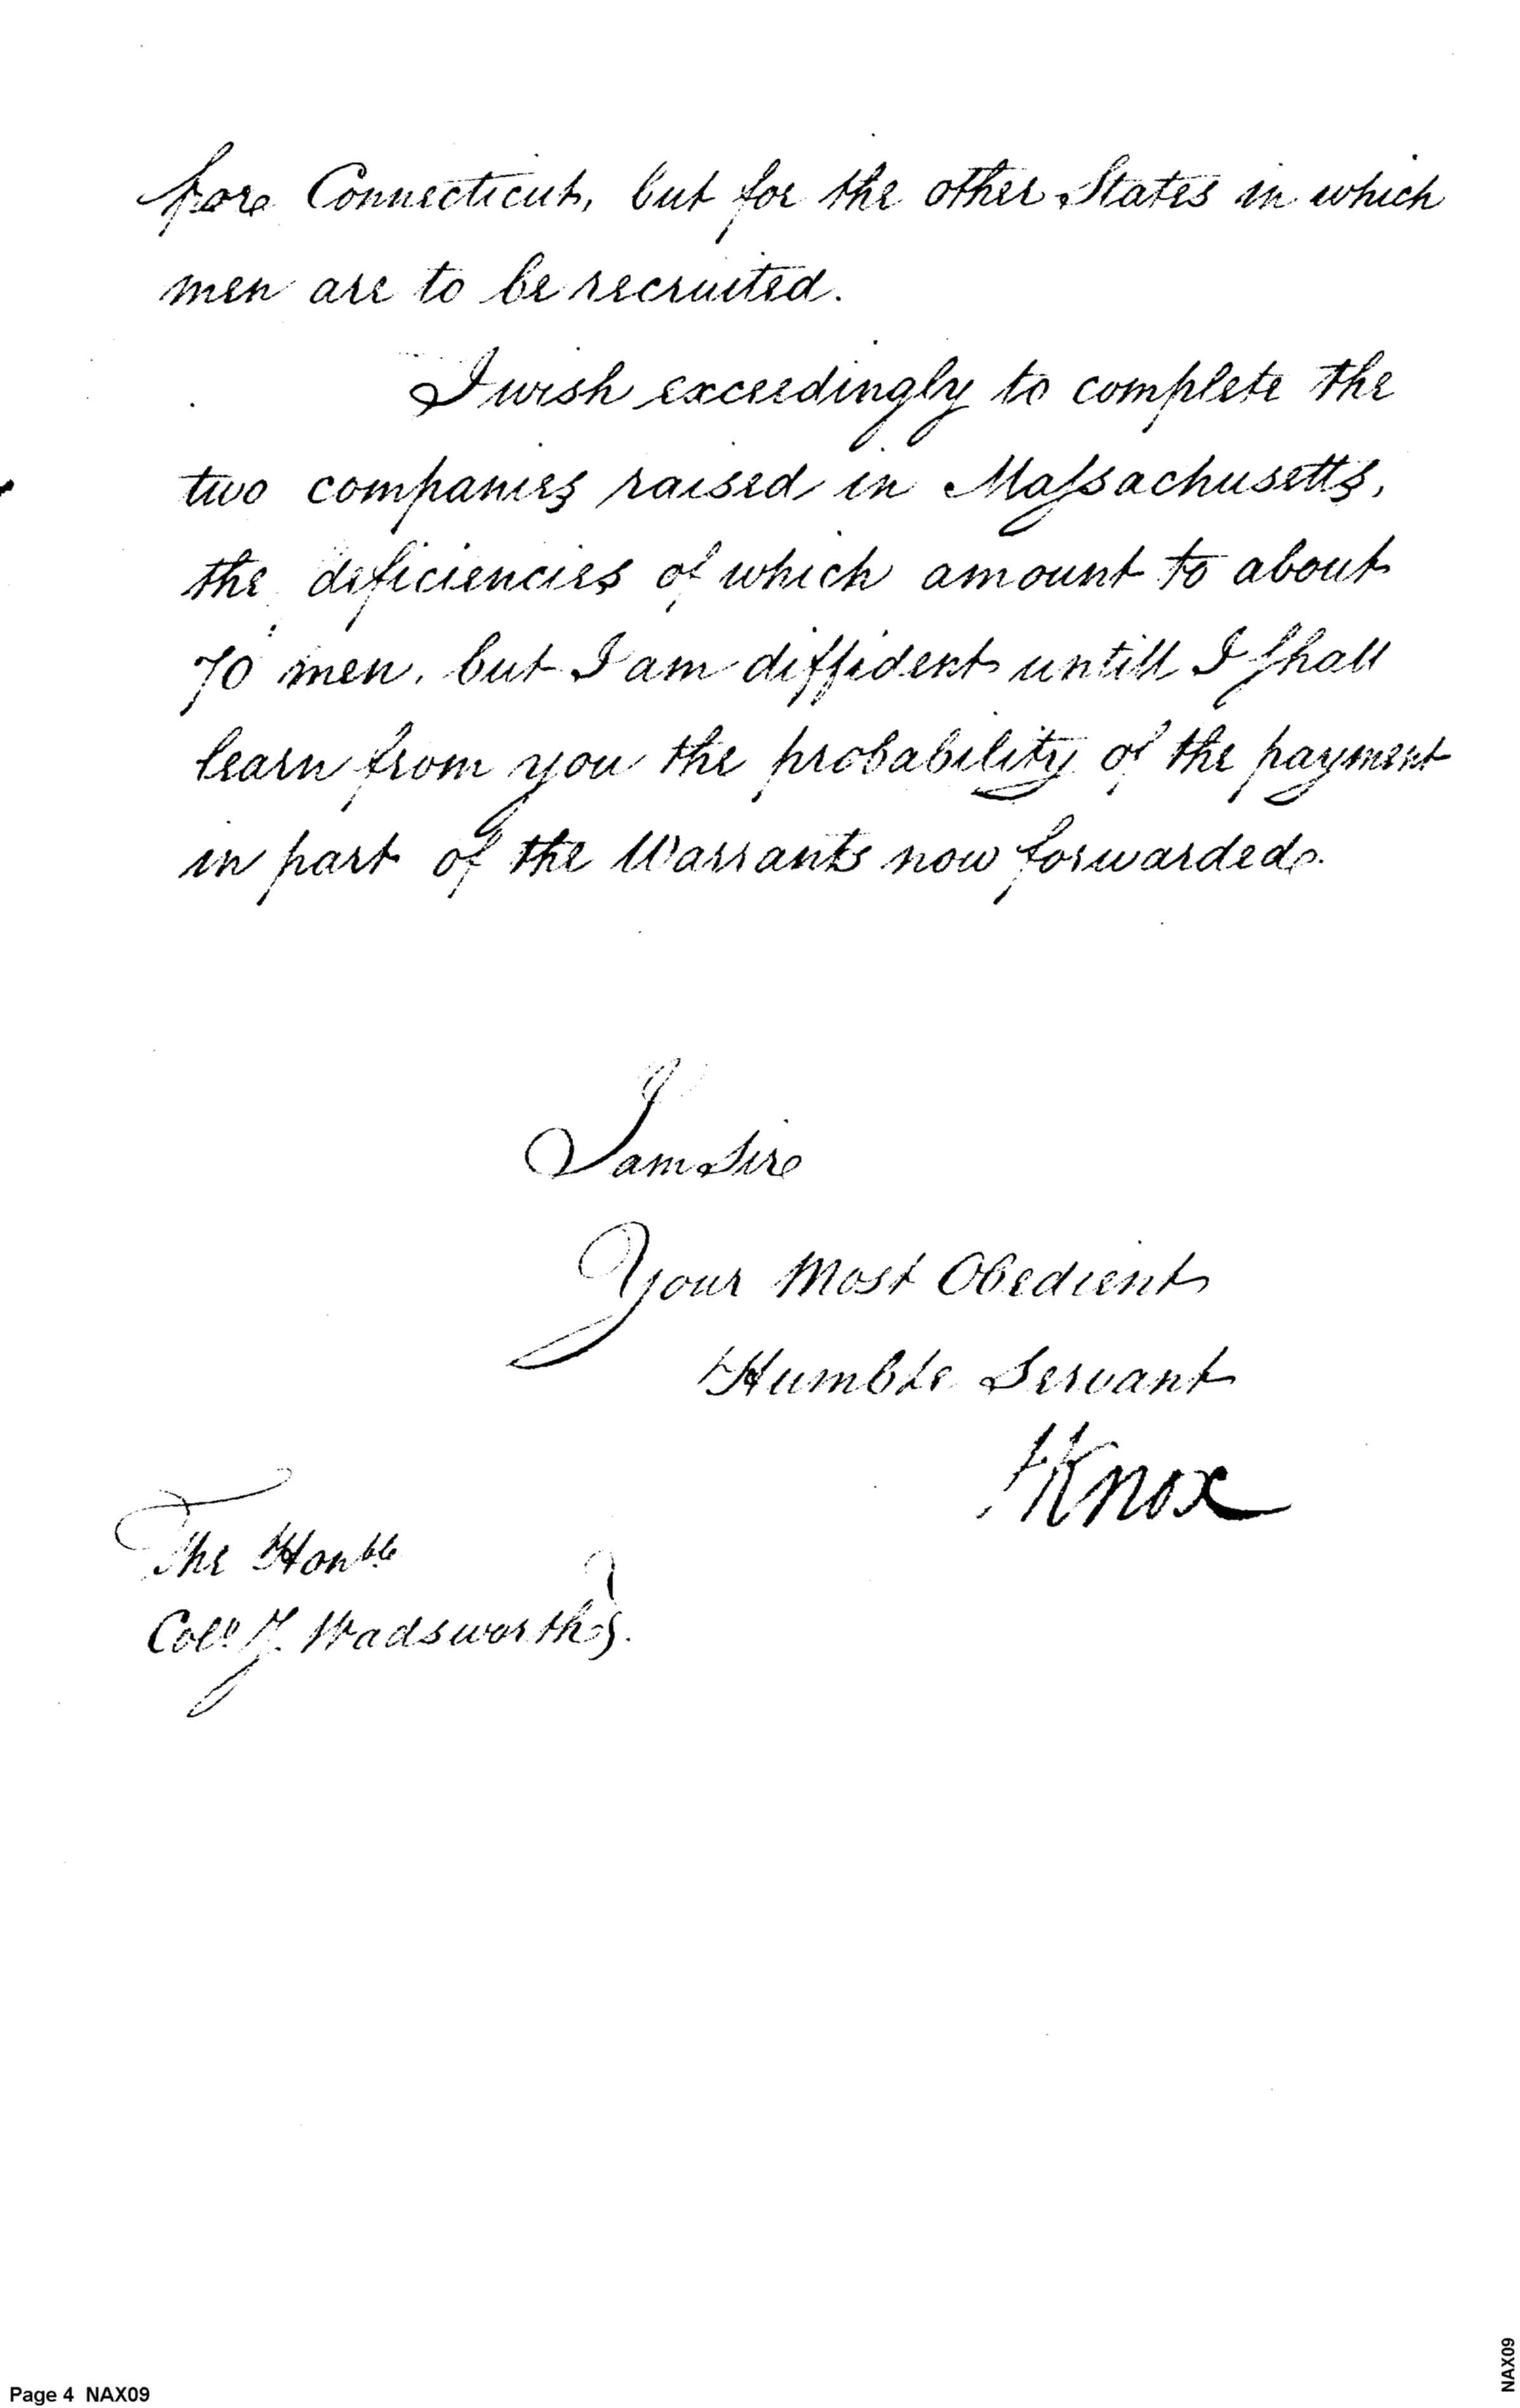 for Connecticut, but for the other States in which
men are to be recruited.
I wish exceedingly to complete the
two companies raised in Massachusetts,
the deficiencies of which amount to about
70 men, but I am diffident untill I shall
learn from you the probability of the payment
in part of the Warrants now forwarded.
I am Sir
Your Most Obedient
Humble Servant
HKnox
The Honble
Coll J. Wadsworth
Page 4 NAX09
NAX09